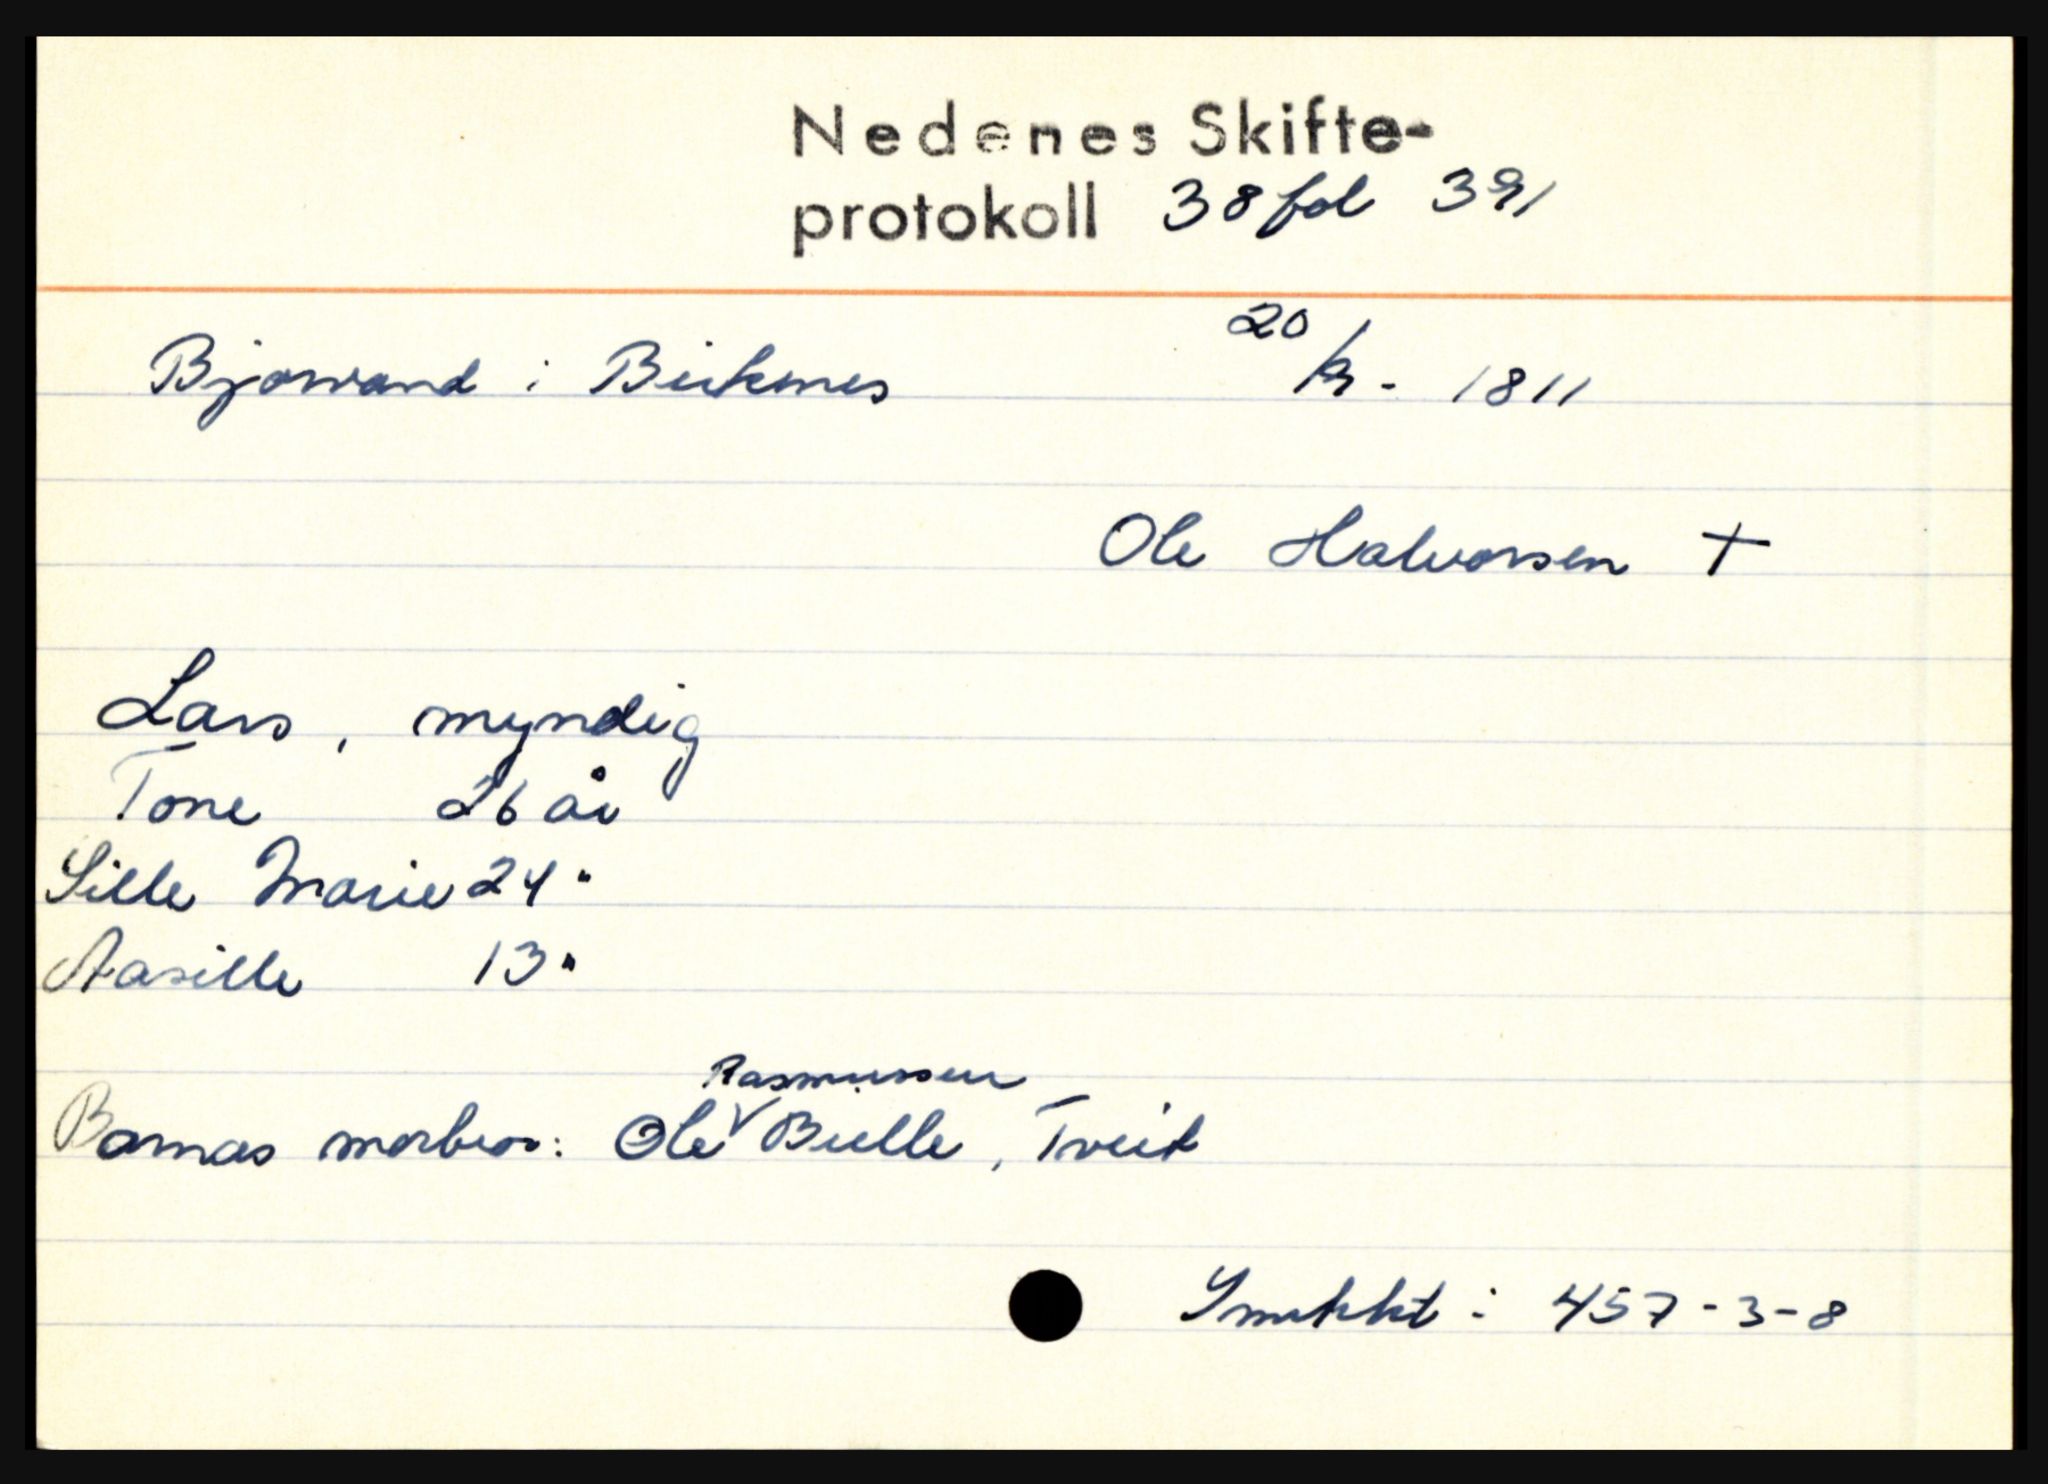 Nedenes Skifte-
protokoll 38 fol 391
Bjorvand i Birkenes 20/ - 1811
Ole Halvorsen +
Lars, myndig
Tone 26 år
Sille Marie 24 "
Aasille 13 "
Rasmussen
Barnas morbror: Ole ∨ Bielle, Tveit
: 457-3-8